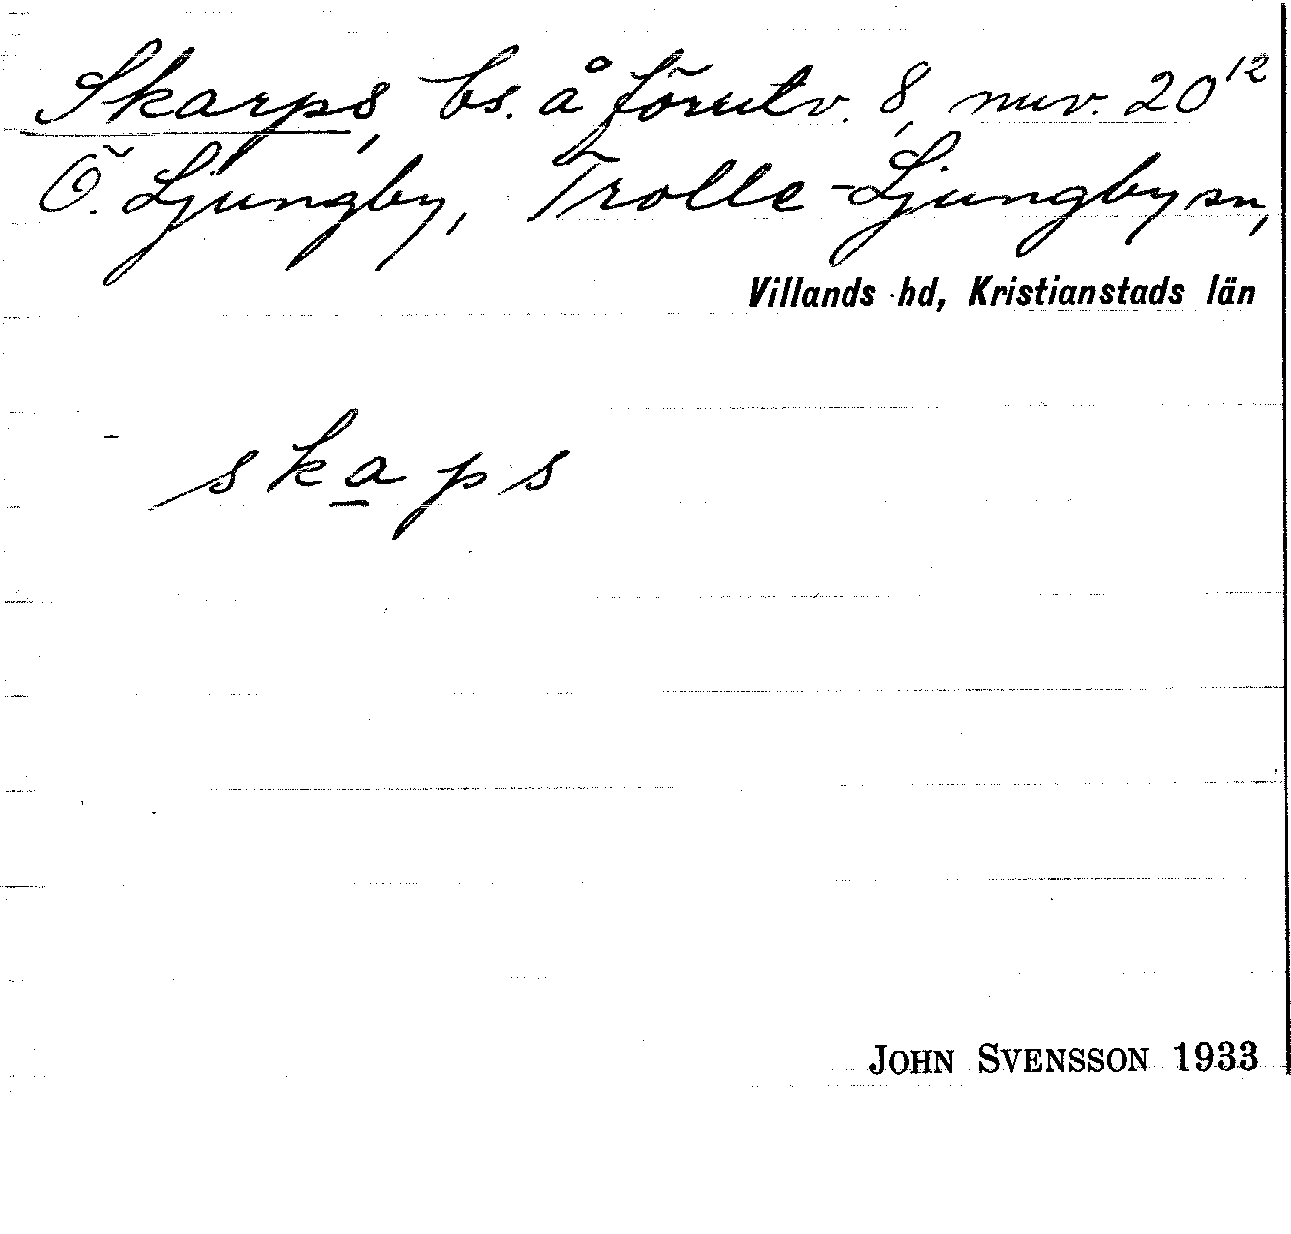 Skarps, bs. å förutv. 8, nuv. 20¹²
Ö. Ljungby, Trolle-Ljungby sn,
Villands hd, Kristianstads län
skaps
JOHN SVENSSON 1933